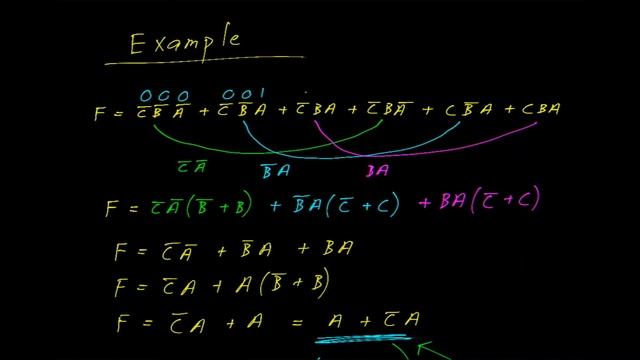 Example
000 001
F = C̅ B̅ A̅ + C̅ B̅ A + C̅ B A + C̅ B A̅ + C B̅ A + C B A
C̅ A̅ B̅ A B A
F = C̅ A̅ (B̅ + B) + B̅ A (C̅ + C) + B A (C̅ + C)
F = C̅ A̅ + B̅ A + B A
F = C̅ A + A (B̅ + B)
F = C̅ A + A = A + C̅ A